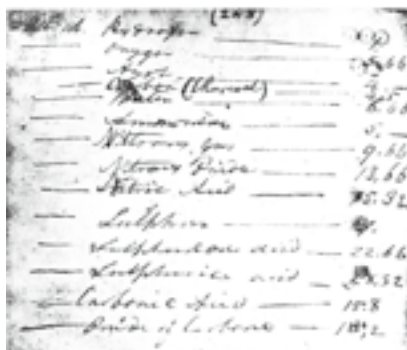 (248)
at. Hydrogen
Oxygen 5.66
Azot 4
(Charcoal) 4.5
Water 6.66
Ammonia 5
Nitrous gas 9.66
Nitrous Oxide 13.66
Nitric Acid 15.32
Sulphur
Sulphureous acid 22.66
Sulphuric acid
Carbonic Acid 15.8
Oxide of Carbone